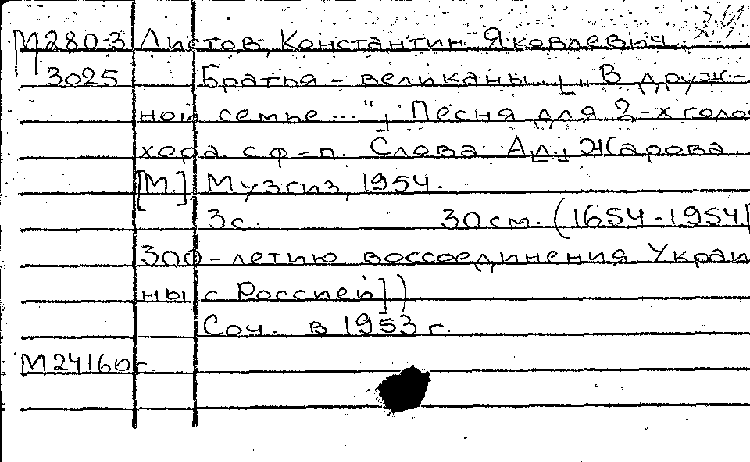 М280-3 Листов, Константин Яковлевич.
3025 Братья - великаны. „В друж-
ной семье..."; Песня для 2-х голо
хора с ф-п. Слова Ал. Жарова
[М.] Музгиз, 1954.
3с. 30см. (1654-1954[
300-летию воссоединения Украи
ны с Россией])
Соч. в 1953 г.
М24160г.